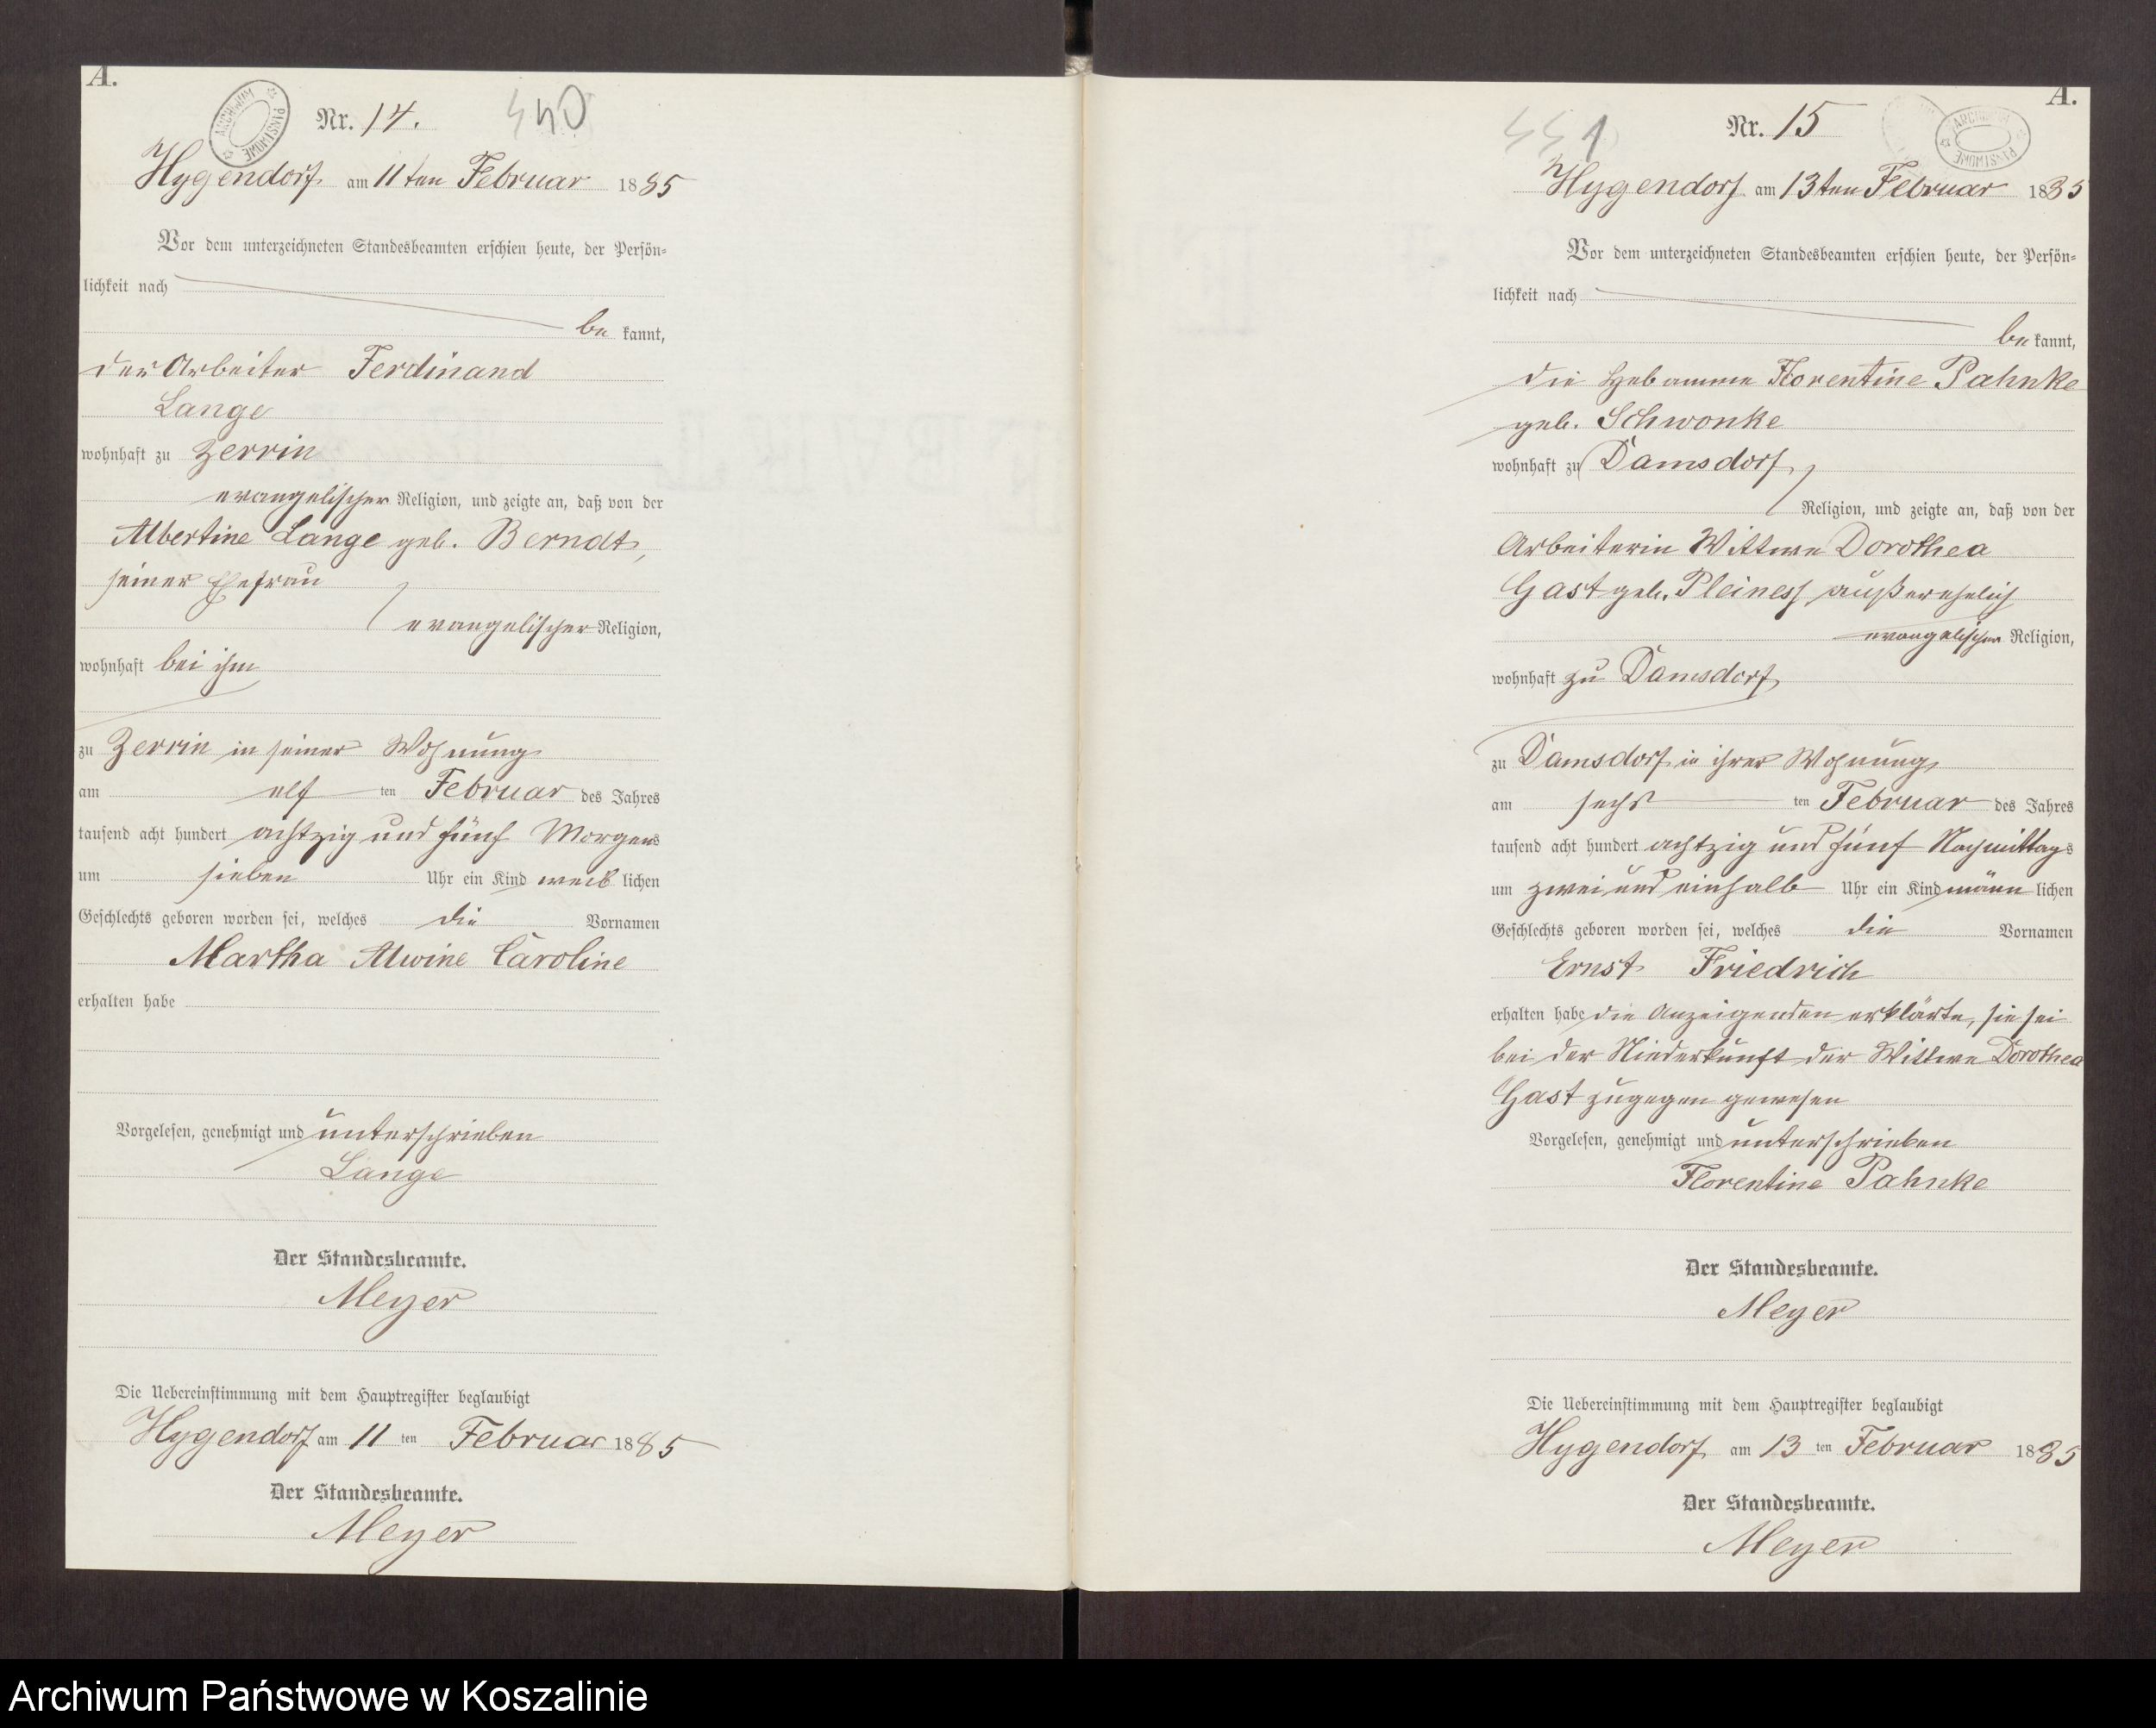 A.
ARCHIWUM PAŃSTWOWE
Nr. 14.
440
Hygendorf am 11ten Februar 1885
Vor dem unterzeichneten Standesbeamten erschien heute, der Persön-
lichkeit nach
be kannt,
der Arbeiter Ferdinand
Lange
wohnhaft zu Zerrin
evangelischer Religion, und zeigte an, daß von der
Albertine Lange geb. Berndt,
seiner Ehefrau
evangelischer Religion,
wohnhaft bei ihm
zu Zerrin in seiner Wohnung
am elf ten Februar des Jahres
tausend acht hundert achtzig und fünf Morgens
um sieben Uhr ein Kind weib lichen
Geschlechts geboren worden sei, welches die Vornamen
Martha Alwine Caroline
erhalten habe
Vorgelesen, genehmigt und unterschrieben
Lange
Der Standesbeamte.
Meyer
Die Uebereinstimmung mit dem Hauptregister beglaubigt
Hygendorf am 11 ten Februar 1885
Der Standesbeamte.
Meyer
A.
441
Nr. 15
ARCHIWUM PAŃSTWOWE
Hygendorf am 13ten Februar 1885
Vor dem unterzeichneten Standesbeamten erschien heute, der Persön-
lichkeit nach
be kannt,
die Hebamme Florentine Pahnke
geb. Schwonke
wohnhaft zu Damsdorf,
Religion, und zeigte an, daß von der
Arbeiterin Wittwe Dorothea
Gast geb. Pleiness außerehelich
evangelischer Religion,
wohnhaft zu Damsdorf
zu Damsdorf in ihrer Wohnung
am sechs ten Februar des Jahres
tausend acht hundert achtzig und fünf Nachmittags
um zwei und einhalb Uhr ein Kind männ lichen
Geschlechts geboren worden sei, welches die Vornamen
Ernst Friedrich
erhalten habe die Anzeigenden erklärte, sie sei
bei der Niederkunft der Wittwe Dorothea
Gast zugegen gewesen
Vorgelesen, genehmigt und unterschrieben
Florentine Pahnke
Der Standesbeamte.
Meyer
Die Uebereinstimmung mit dem Hauptregister beglaubigt
Hygendorf am 13 ten Februar 1885
Der Standesbeamte.
Meyer
Archiwum Państwowe w Koszalinie